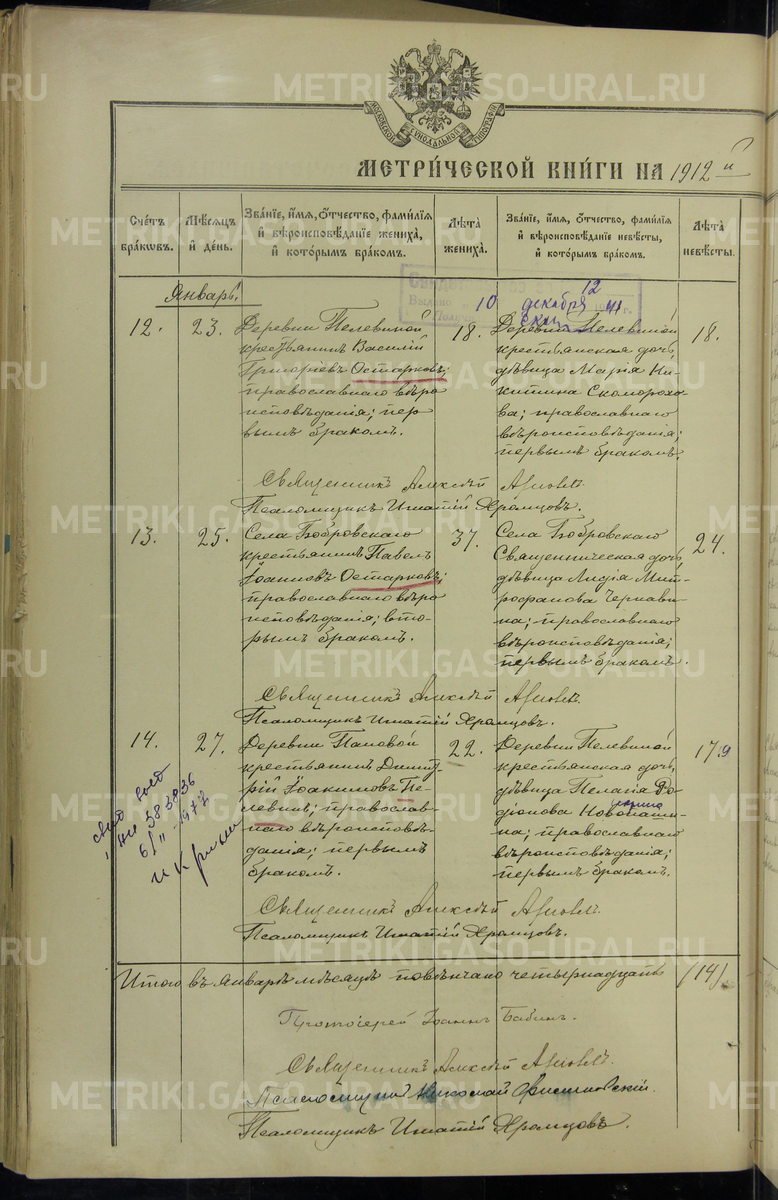 МОСКОВСКОЙ СѴНОДАЛЬНОЙ ТИПОГРАФІИ
МЕТРИ́ЧЕСКОЙ КНИ́ГИ НА 1912 й
Сче́тъ бра́кωвъ.
Мѣ́сѧцъ и҆ де́нь.
Зва́нїе, и҆́мѧ, ѻ҆́тчество, фамі́лїѧ
и҆ вѣроисповѣ́данїе жениха̀,
и҆ кото́рымъ бра́комъ.
Лѣ́та жениха̀.
Зва́нїе, и҆́мѧ, ѻ҆́тчество, фамі́лїѧ
и҆ вѣроисповѣ́данїе невѣ́сты,
и҆ кото́рымъ бра́комъ.
Лѣ́та невѣ́сты.
Январь.
12
10 декабря 41
12. 23.
Деревни Пелевиной
крестьянинъ Василій
Григоріевъ Остарковъ;
православнаго вѣро
исповѣданія; пер
вымъ бракомъ.
18.
Деревни Пелевиной
крестьянская дочь,
дѣвица Марія Ни-
китина Скоморохо-
ва; православнаго
вѣроисповѣданія;
первымъ бракомъ.
18.
Священникъ Алексѣй
Псаломщикъ Игнатій Храмцовъ.
13. 25.
Села Бобровскаго
крестьянинъ Павелъ
Іоанновъ Остарковъ;
православнаго вѣро
исповѣданія; вто-
рымъ бракомъ.
37.
Села Бобровскаго
Священническая дочь,
дѣвица Лидія Мит-
рофанова Чернави-
на; православнаго
вѣроисповѣданія;
первымъ бракомъ.
24.
Священникъ Алексѣй
Псаломщикъ Игнатій Храмцовъ.
14. 27.
Деревни Пановой
крестьянинъ Димит-
рій Іоакимовъ Пе-
левинъ; православ-
наго вѣроисповѣ-
данія; первымъ
бракомъ.
22.
Деревни Пелевиной
крестьянская дочь,
дѣвица Пелагія Ро-
діонова Новопаши-
на; православнаго
вѣроисповѣданія;
первымъ бракомъ.
179
383836
6/II - 1977
Священникъ Алексѣй
Псаломщикъ Игнатій Храмцовъ.
Итого въ январѣ мѣсяцѣ повѣнчано четырнадцать (14).
Протоіерей Іоаннъ Бабинъ.
Священникъ Алексѣй
Псаломщикъ Николай
Псаломщикъ Игнатій Храмцовъ.
METRIKI.GASO-URAL.RU